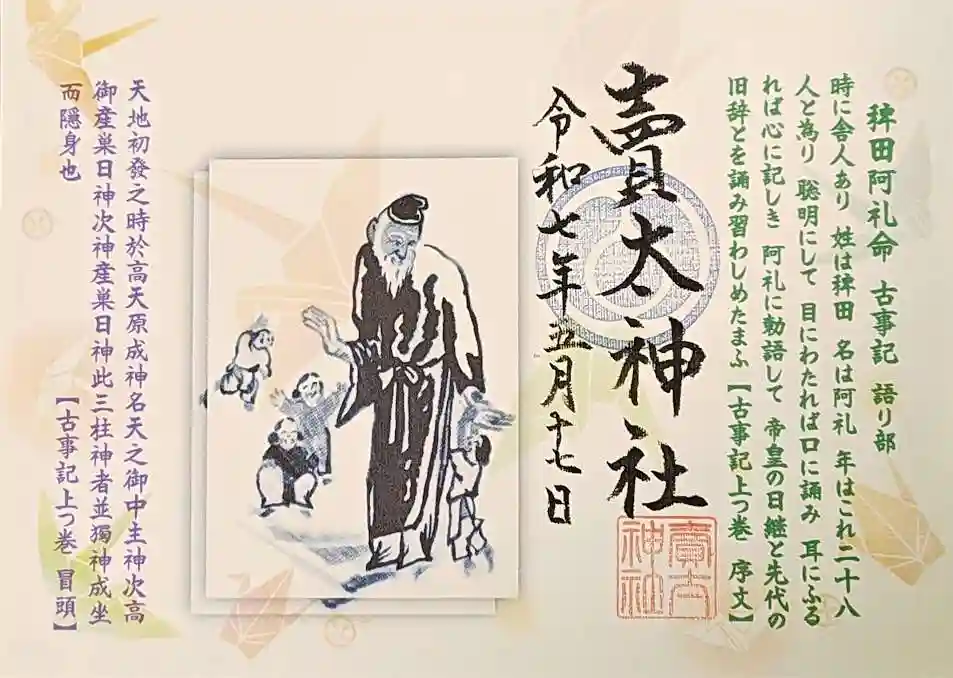 稗田阿礼命 古事記 語り部
時に舎人あり 姓は稗田 名は阿礼 年はこれ二十八
人と為り 聡明にして 目にわたれば口に誦み 耳にふる
れば心に記しき 阿礼に勅語して 帝皇の日継と先代の
旧辞とを誦み習わしめたまふ【古事記上つ巻 序文】
賣太神社
賣太神社
令和七年五月十七日
天地初發之時於高天原成神名天之御中主神次高
御産巣日神次神産巣日神此三柱神者並獨神成坐
而隠身也
【古事記上つ巻 冒頭】